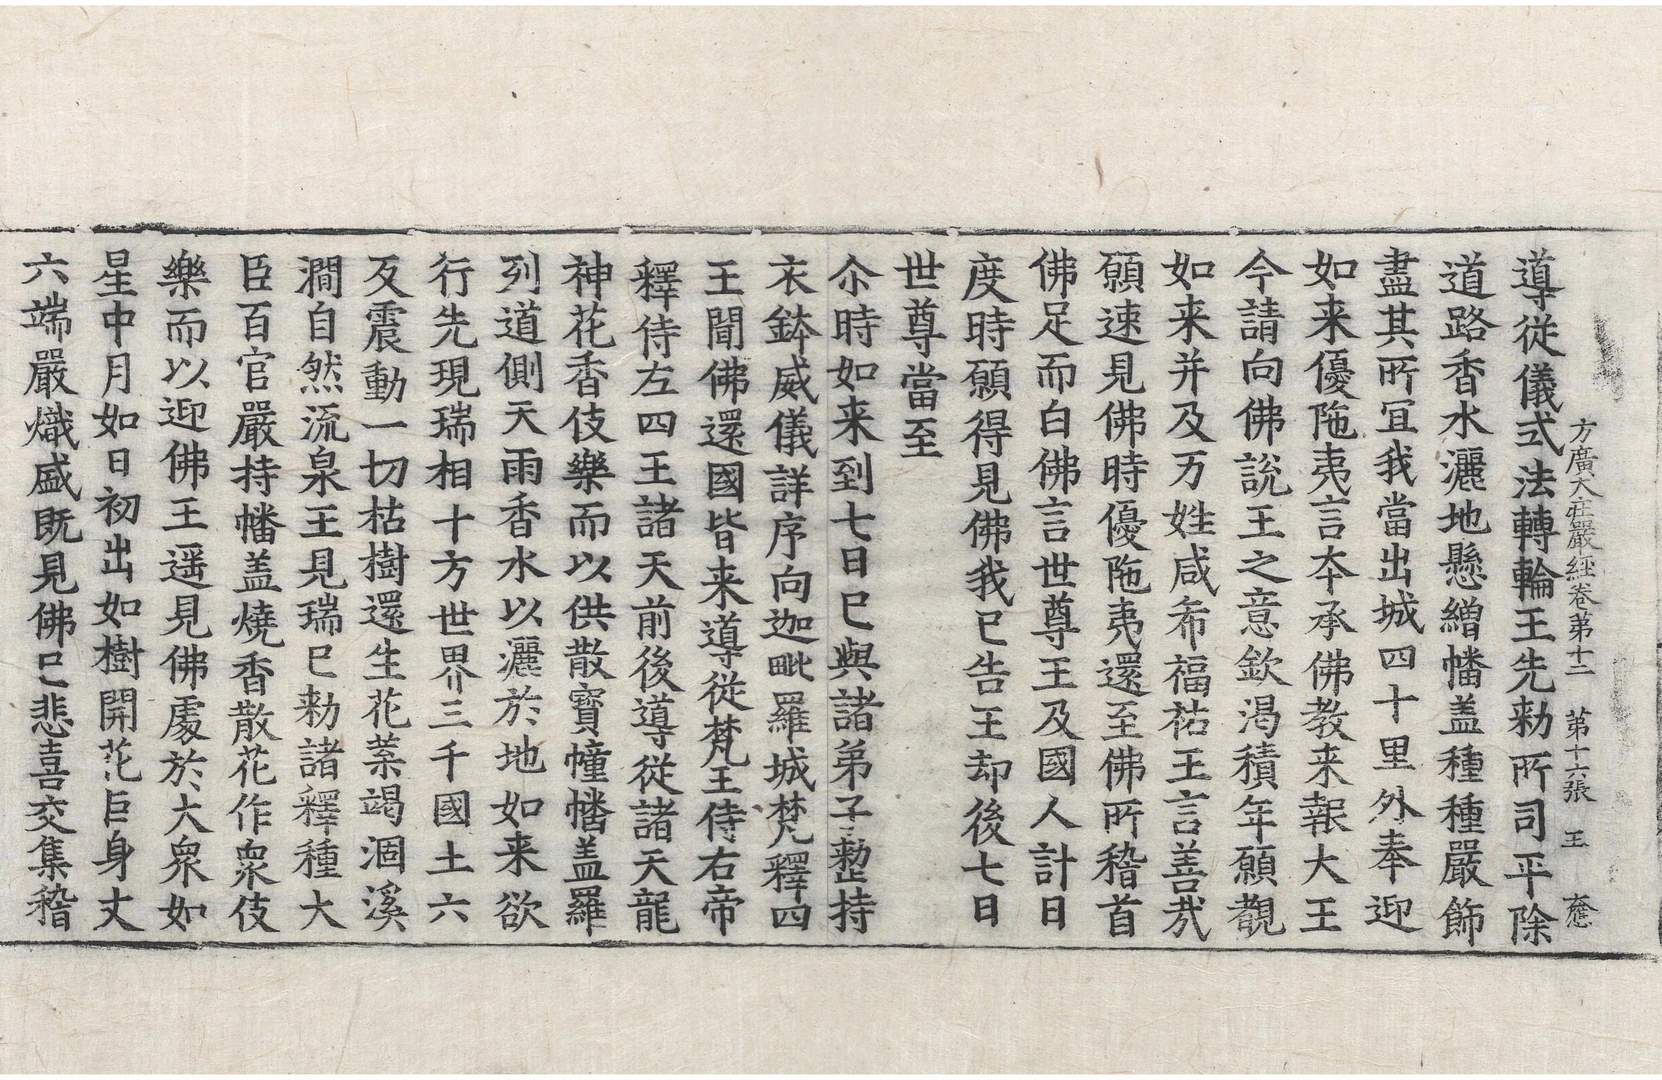 方廣大莊嚴經卷第十二 第十六張 王 應
導從儀式法轉輪王先勑所司平除
道路香水灑地懸繒幡盖種種嚴飾
盡其所冝我當出城四十里外奉迎
如来優陁夷言夲承佛教来報大王
今請向佛說王之意欽渴積年願覩
如来并及万姓咸希福祐王言善㢤
願速見佛時優陁夷還至佛所稽首
佛足而白佛言世尊王及國人計日
度時願得見佛我已告王却後七日
世尊當至
尒時如来到七日已與諸弟子勑持
衣鉢威儀詳序向迦毗羅城梵釋四
王聞佛還國皆来導從梵王侍右帝
釋侍左四王諸天前後導從諸天龍
神花香伎樂而以供散寳幢幡盖羅
列道側天雨香水以灑於地如来欲
行先現瑞相十方世界三千國土六
反震動一切枯樹還生花葉竭涸溪
澗自然流泉王見瑞已勑諸釋種大
臣百官嚴持幡盖燒香散花作衆伎
樂而以迎佛王遥見佛處於大衆如
星中月如日初出如樹開花巨身丈
六端嚴熾盛既見佛已悲喜交集稽